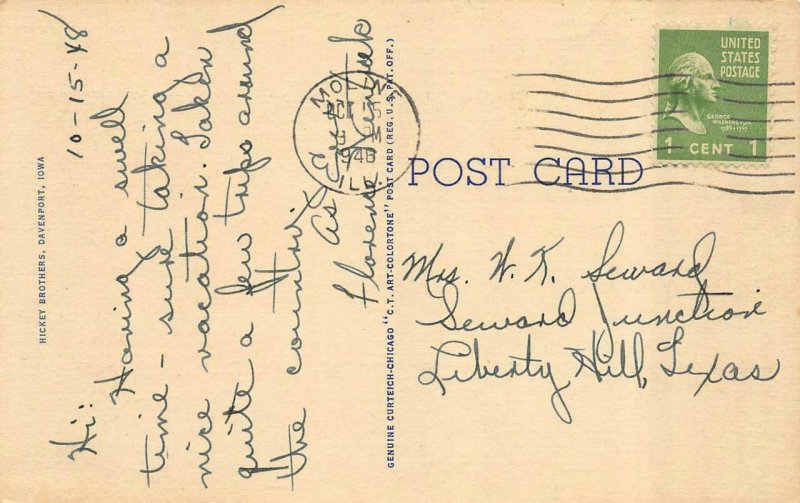 10-15-48
Hi:
Having a swell
time - sure taking a
nice vacation. Taken
quite a few trips around
the country.
As
Florence
HICKEY BROTHERS, DAVENPORT, IOWA
GENUINE CURTEICH-CHICAGO "C.T. ART-COLORTONE" POST CARD (REG. U.S. PAT. OFF.)
MOLINE
OCT
M
1948
ILL.
POST CARD
UNITED
STATES
POSTAGE
GEORGE
WASHINGTON
1789-1797
1 CENT 1
Mrs. W. K. Seward
Seward Junction
Liberty Hill, Texas